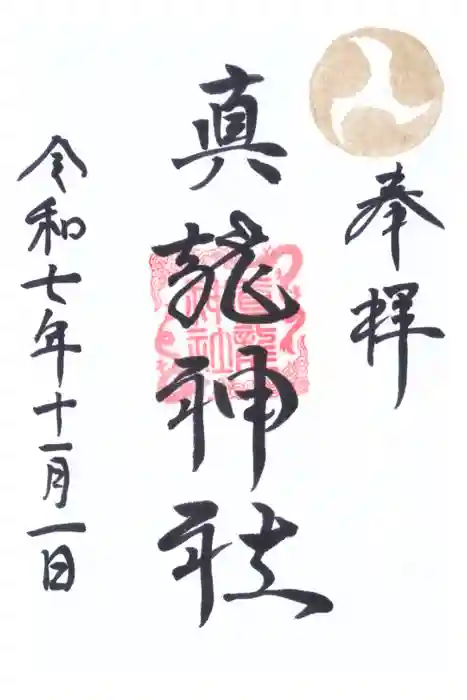 奉拝
真龍神社
真龍神社
令和七年十一月一日